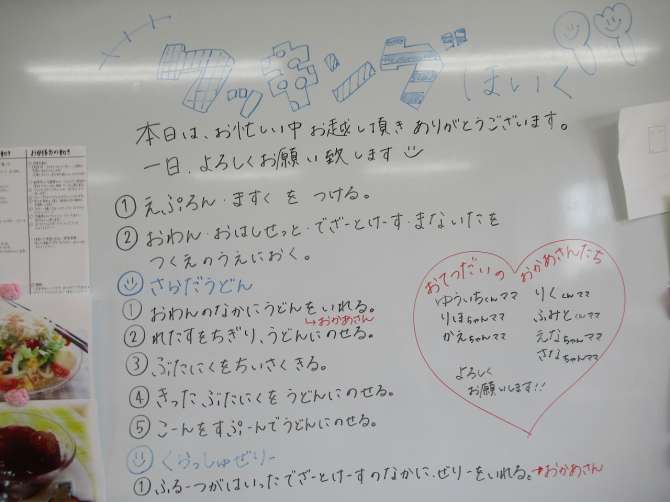 クッキング ほいく
本日は、お忙しい中 お越し頂き ありがとうございます。
一日、よろしくお願い致します
① えぷろん・ますく を つける。
② おわん・おはしせっと・でざーとけーす・まないたを
つくえのうえにおく。
さらだうどん
① おわんのなかにうどんをいれる。
↳おかあさん
② れたすをちぎり、うどんにのせる。
③ ぶたにくをちいさくきる。
④ きったぶたにくをうどんにのせる。
⑤ こーんをすぷーんでうどんにのせる。
くらっしゅぜりー
① ふるーつがはいったでざーとけーすのなかに、ぜりーをいれる。→おかあさん
おてつだいの おかあさんたち
ゆういちくんママ りくくんママ
りほちゃんママ ふみとくんママ
かえちゃんママ えなちゃんママ
さなちゃんママ
よろしく
お願いします!!